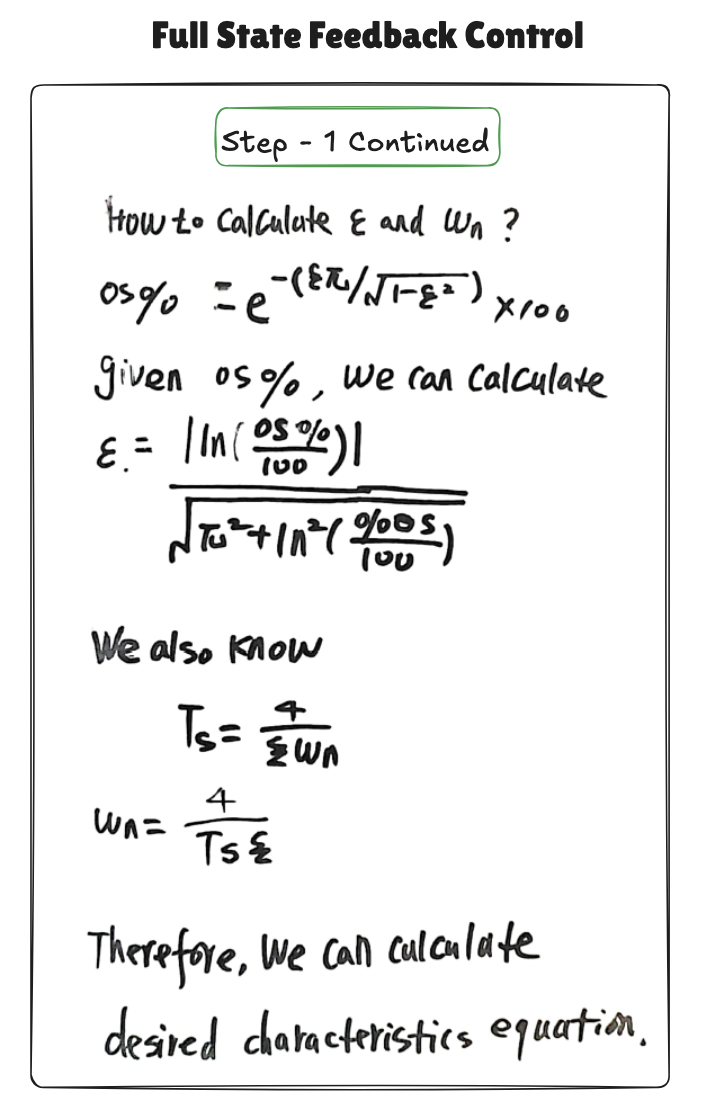 Full State Feedback Control
Step - 1 Continued
How to Calculate ξ and ωn ?
OS% = e^-(ξπ/√1-ξ²) ×100
given OS%, we can calculate
ξ = |ln(OS%/100)| / √π²+ln²(%OS/100)
We also know
Ts = 4/ξωn
ωn = 4/Tsξ
Therefore, We can calculate
desired characteristics equation.